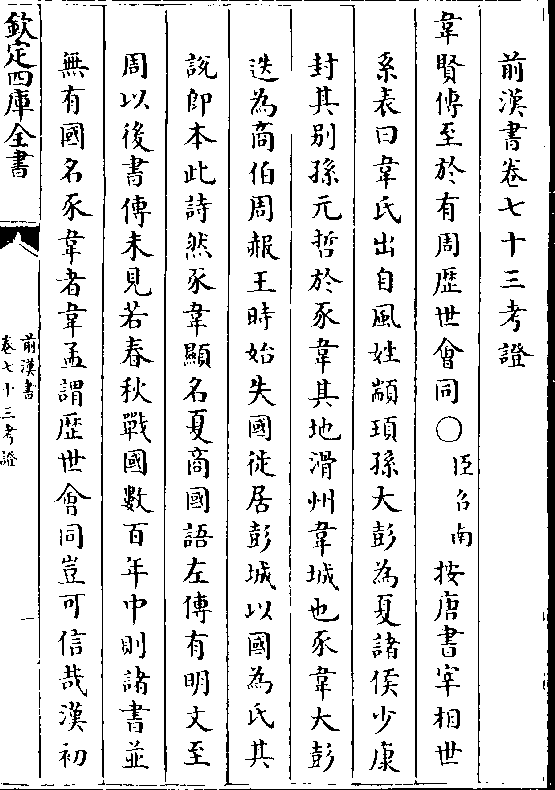 前漢書卷七十三考證
韋賢傳至於有周歷世會同〇臣召南按唐書宰相世
系表曰韋氏出自風姓顓頊孫大彭為夏諸侯少康
封其别孫元哲於豕韋其地滑州韋城也豕韋大彭
迭為商伯周赧王時始失國徙居彭城以國為氏其
説即本此詩然豕韋顯名夏商國語左傳有明文至
周以後書傳未見若春秋戰國數百年中則諸書並
無有國名豕韋者韋孟謂歴世會同豈可信哉漢初
欽定四庫全書
前漢書
卷七十三考證
一